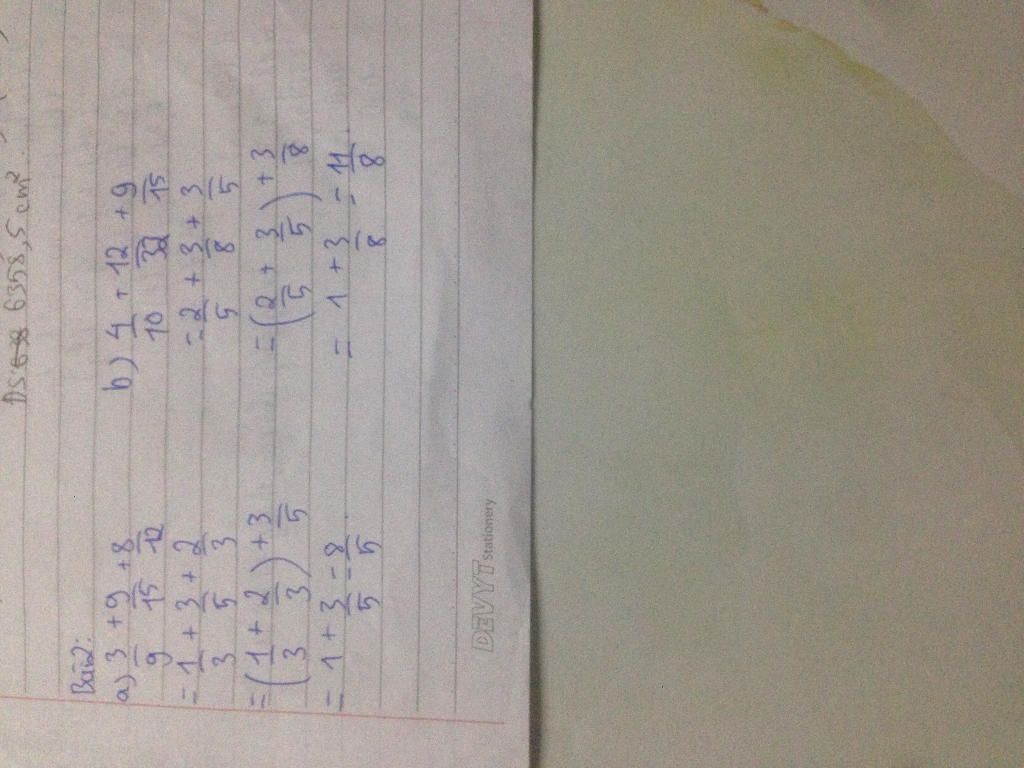 6358,5 cm²
Bài 2:
a) 3/9 + 9/15 + 8/12
= 1/3 + 3/5 + 2/3
= (1/3 + 2/3) + 3/5
= 1 + 3/5 = 8/5
b) 4/10 + 12/32 + 9/15
= 2/5 + 3/8 + 3/5
= (2/5 + 3/5) + 3/8
= 1 + 3/8 = 11/8
DEVYT Stationery